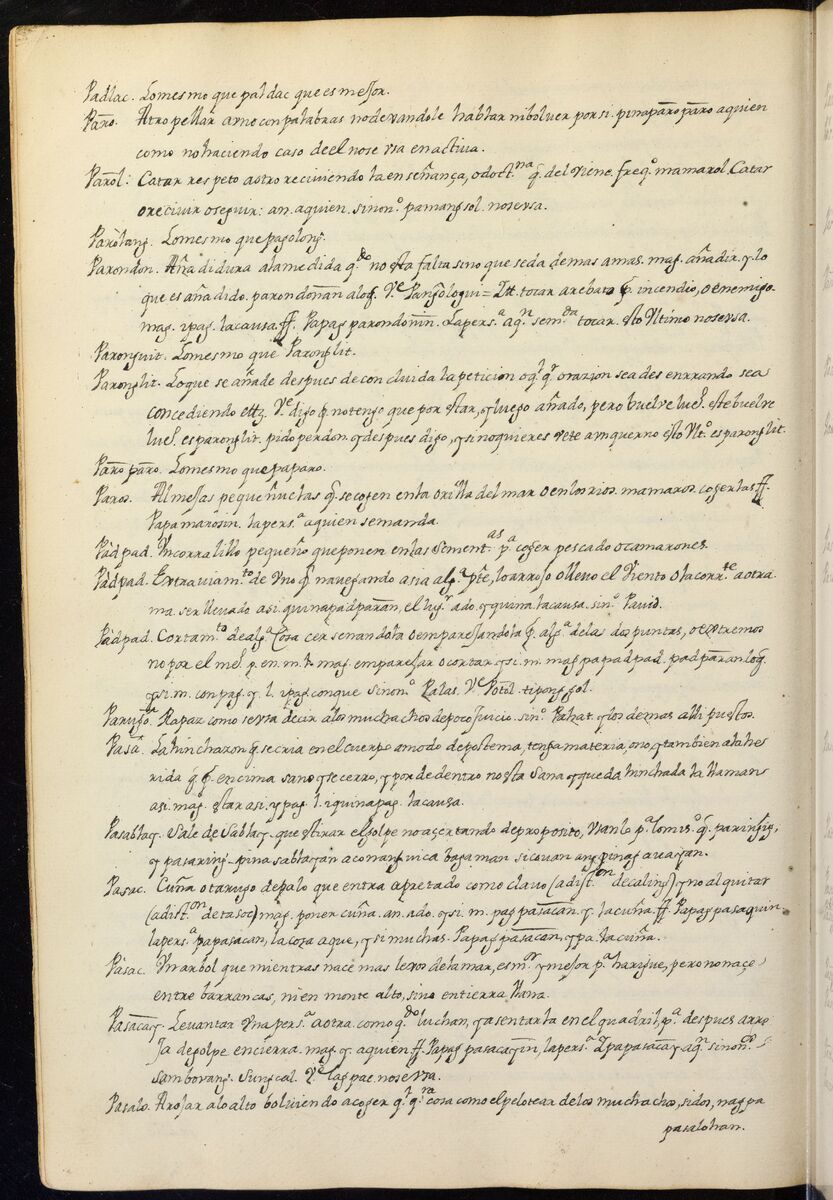 Padlac. Lo mesmo que paldac que es mejor.
Paro. Atropellar a uno con palabras no dexandole hablar ni boluer por si. pinaparo paro aquien
como no haciendo caso de el no se vsa en activa.
Parol: Catar respeto a otro reciviendo la enseñança, o doct.na q. del viene. freq.o mamarol. Catar
o recivir o seguir: an. aquien. sinon.o pamangsol. no se vsa.
Parolang. Lo mesmo que pagolong.
Parondon. Añadidura a la medida q.do no esta falta sino que se da demas amas. mag. añadir. y lo
que es añadido. parondonan a log. V.e Pangologui = Itt. tocar a rebato p. incendio, o enemigo.
mag. ipag. la causa. ff. Papag parondonin. La pers.a aq.n se m.da tocar. esto Vltimo no se vsa.
Paronguit. Lo mesmo que Paronglit.
Paronglit. Lo que se añade despues de concluida la peticion o q.l q.r orazion sea desenrrando sea
concediendo ettz. V.e digo q no tengo que por star, y luego añado, pero buelve lueg. este buelve
lueg. es paronglit. pido perdon. y despues digo, y si no quieres vete aunque no esto Vlt.o es paronglit.
Paro paro. Lo mesmo que paparo.
Paros. Almejas pequeñuelas q. se cogen en la orilla del mar o en los rios. mamaros. cogerlas ff.
Papamarosin. la pers.a aquien se manda.
Padpad. Vn corralillo pequeño que ponen en las sement.as p.a coger pescado o camarones.
Padpad. Extraviam.to de vno q. navegando asia alg.a p.te, lo arrojo o llevo el Viento o la corr.te a otra.
ma. ser llevado asi. quinapadparan, el lug.r ado. y quina. la causa. sin.o Pavid.
Padpad. Cortam.to de alg.a Cosa cersenandola o emparejandola p. alg.a de las dos puntas, o extremos
no por el me. p. en. m. to mag. emparejar o cortar. y si. m. mag papadpad. padparan lo q.
y si. m. con pag. y l. ipag. con que Sinon.o Palas. V.e Potol. tiponggol.
Rapaz como se vsa decir a los muchachos de poco juicio. sin.o Pahat. y los demas alli puestos.
Pasa. La hinchazon q. se cria en el cuerpo a modo de postema, tenga materia, o no, y tambien a la he
rida q. p. encima sano y se cerro, y por de dentro no esta sana y queda hinchada la llaman
asi. mag. estar asi. y pag. l. iquinapag. la causa.
Pasablay. Sale de Sablay. que es tirar el golpe no asertando de proposito, Vsanlo p.a lo mis.o q. paringig,
y pasaring. pinasablayan aco nang vica
Pasac. Cuña o tarugo de palo que entra apretado como clavo (a dist.on de caling) y no al quitar
(a dist.on de tasoc) mag. poner cuña. an. ado. y si. m. pag pasacan. y. la cuña. ff. Papag pasaquin.
la pers.a papasacan, la cosa a que, y si muchas. Papag pasacan, y pa. la cuña.
Pasac. Vn arbol que mientras nace mas lexos de la mar, es m.r y mejor p.a harigue, pero no naçe
entre barrancas, ni en monte alto, sino en tierra llana.
Pasacay. Levantar Vna pers.a a otra. como q.do luchan, y asentarla en el quadril, p.a despues arro
ja de golpe en tierra. mag. y. aquien ff. Papag pasacayin, la pers.a I papasacay aq.n sinon.o
Samborang. Sungcal. V.e lagpac no se vsa.
Pasalo. Arojar a lo alto bolviendo a coger q.l q.ra cosa como el pelotear de los muchachos, si dos, nagpa
pasalohan.